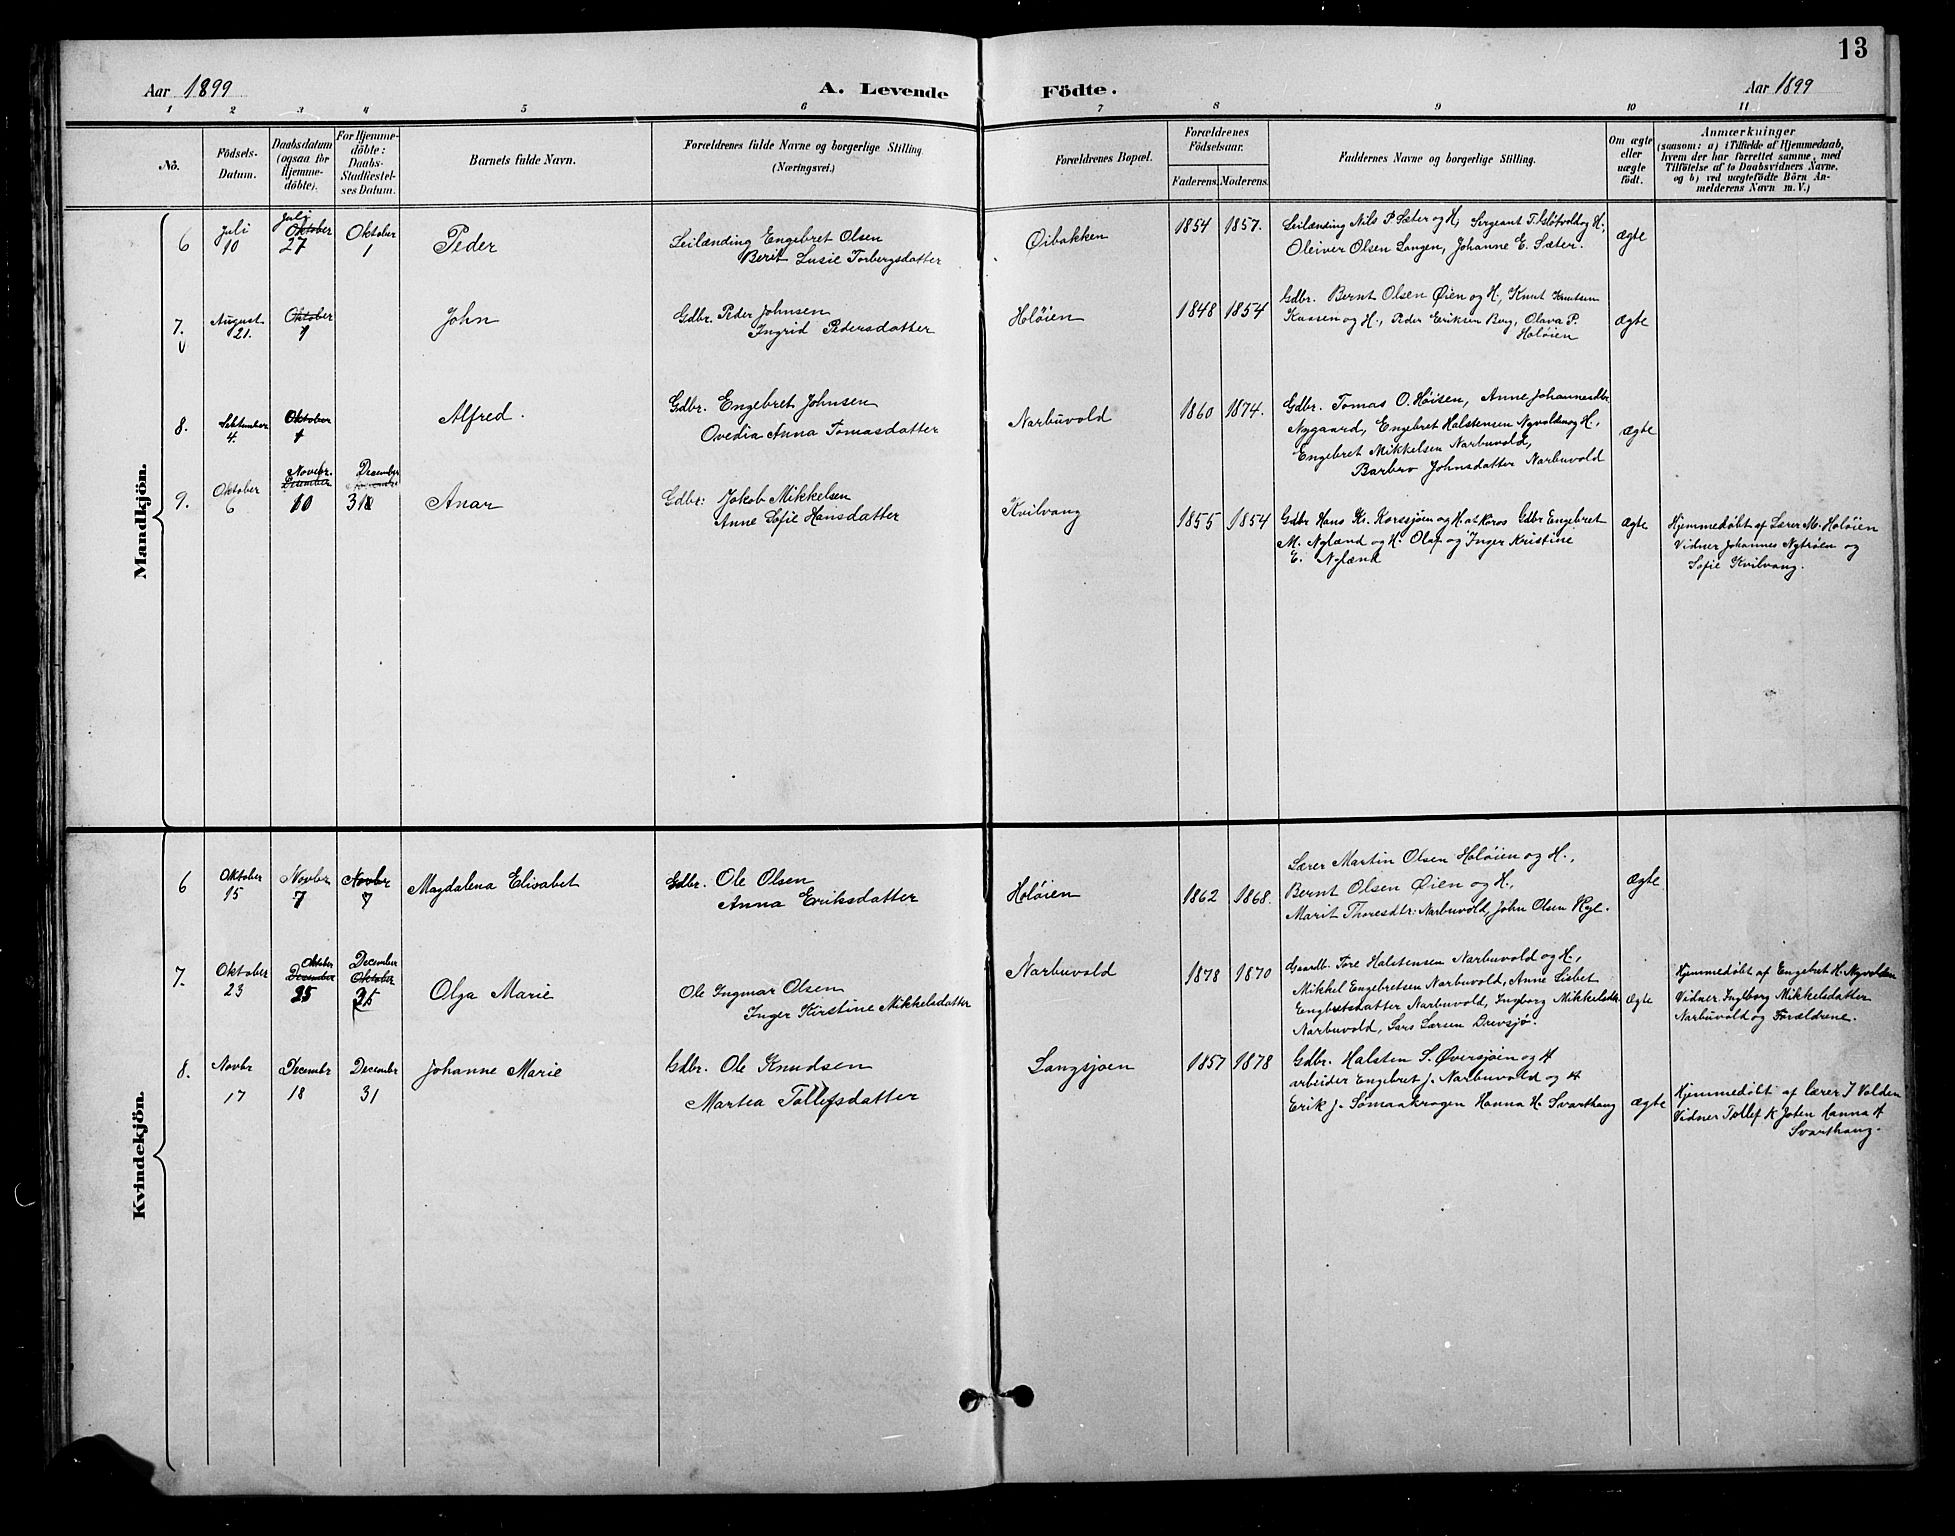 13
Aar 1899
A. Levende Födte.
Aar 1899
1 2 3 4 5 6 7 8 9 10 11
Nô.
Födsels-Datum.
Daabsdatum (ogsaa for Hjemmedöbte).
For Hjemmedöbte: Daabs-Stadfæstelses Datum.
Barnets fulde Navn.
Forældrenes fulde Navne og borgerlige Stilling (Næringsvei.)
Forældrenes Bopæl.
Forældrenes Födselsaar.
Faderens. Moderens.
Faddernes Navne og borgerlige Stilling.
Om ægte eller uægte födt.
Anmærkninger
(saasom: a) i Tilfælde af Hjemmedaab, hvem der har forrettet samme, med Tilföielse af to Daabsvidners Navne, og b) ved uægtefödte Börn Anmelderens Navn m. V.)
Mandkjön.
6 Juli 10
Juli Oktober 27
Oktober 1
Peder
Leilænding Engebret Olsen
Berit Lusie Torbergsdatter
Øibakken
1854 1857.
Leilænding Nils P. Sæter og H, Sergeant T. Gløtvold og H,
Oleiver Olsen Langen, Johanne E. Sæter.
ægte
7. August 21.
Oktober 1
John
Gdbr. Peder Johnsen
Ingrid Pedersdatter
Holöien
1848 1854
Gdbr. Bernt Olsen Øien og H, Knut Knutsen
Kaasen og H., Peder Eriksen Berg, Olava P.
Holöien
ægte
8. September 4.
Oktober 1
Alfred.
Gdbr. Engebret Johnsen
Ovedia Anna Tomasdatter
Narbuvold
1860 1874.
Gdbr. Tomas O. Höisen, Anne Johannesdtr
Nygaard, Engebret Halstensen Nyvolden og H,
Engebret Mikkelsen Narbuvold,
Barbro Johnsdatter Narbuvold
ægte
9. Oktober 6
Novebr. December 10
December 31
Anar
Gdbr: Jakob Mikkelsen
Anne Sofie Hansdatter
Kvilvang
1855 1854
Gdbr Hans Kr. Korssjøen og H. at Röros Gdbr Engebret
M. Nyland og H. Olaf og Inger Kristine
E. Nylænd
ægte
Hjemmedøbt af Lærer M. Holöien
Vidner Johannes Nytrøen og
Sofie Kvilvang.
Kvindekjön.
6 Oktober 15
Novbr 7
Novbr 7
Magdalena Elisabet
Gdbr. Ole Olsen
Anna Eriksdatter
Holöien
1862 1868.
Lærer Martin Olsen Holöien og H.,
Bernt Olsen Øien og H.,
Marit Thoresdtr: Narbuvold, John Olsen Ryl.
Ægte
7. Oktober 23
Oktober December 25
December Oktober 25
Olga Marie
Ole Ingmar Olsen
Inger Kirstine Mikkelsdatter
Narbuvold
1878 1870
Gaardb. Tore Halstensen Narbuvold og H.,
Mikkel Engebretsen Narbuvold, Anne Lisbet
Engbretsdatter Narbuvold, Ingborg Mikkelsdtr
Narbuvold, Lars Larsen Drevsjø.
ægte
Hjemmedøbt af Engebret H. Nyvolden
Vidner Ingborg Mikkelsdatter
Narbuvold og Forældrene.
8. Novbr 17
Decembr 18
December 31
Johanne Marie
Gdbr. Ole Knudsen
Martea Tollefsdatter
Langsjøen
1857 1878
Gdbr. Halsten S. Øversjøin og H
arbeider Engebret J. Narbuvold og H
Erik J. Sømaakrogen Hanna H. Svarthaug
ægte
Hjemmedøbt af Lærer I Volden
Vidner Tollef K Joten Hanna H
Svarthaug.